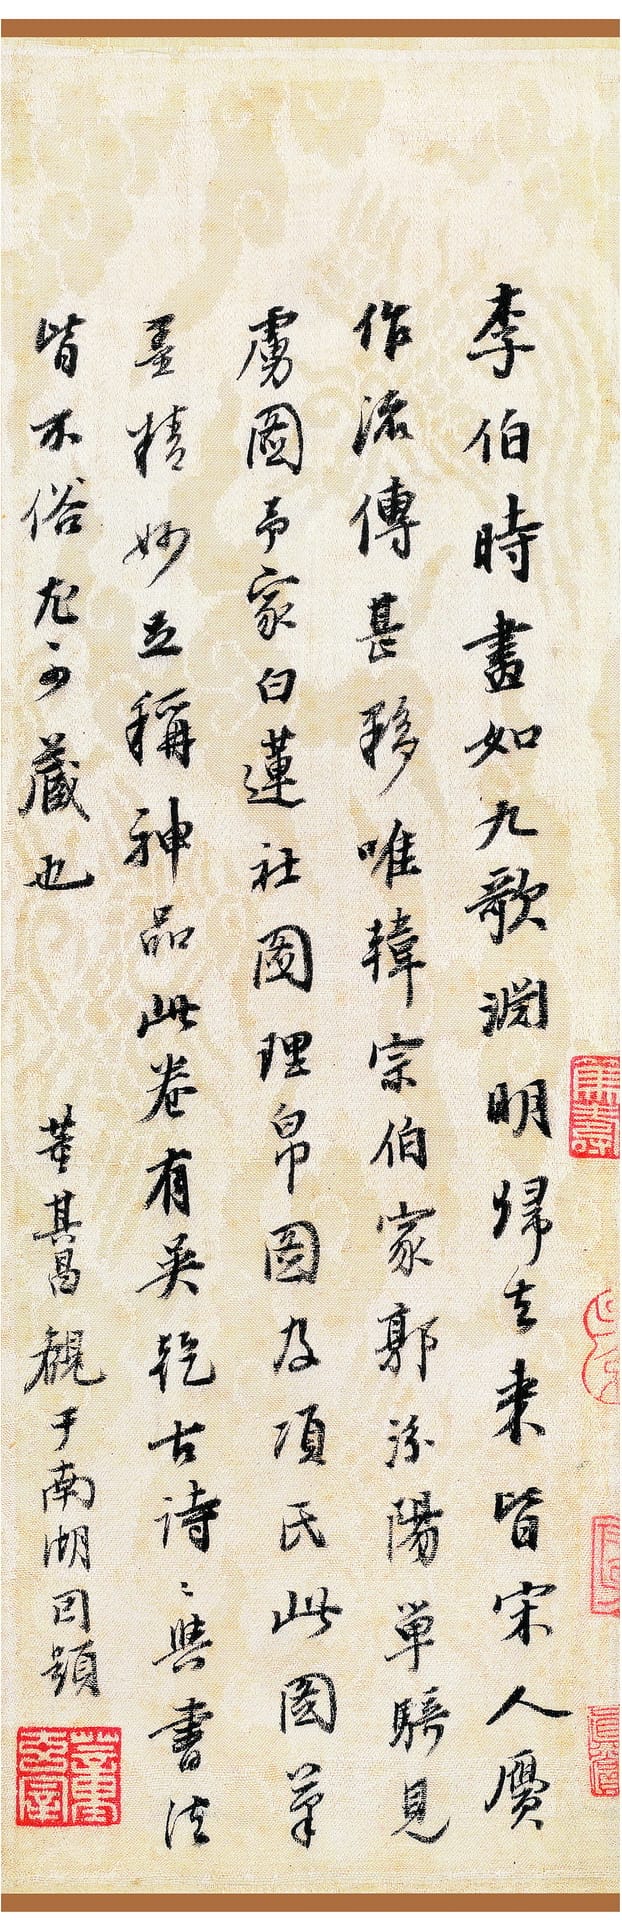 李伯時畫如九歌淵明歸去来皆宋人贗
作流傳甚夥唯韓宗伯家郭汾陽單騎見
虜圖予家白蓮社圖理帛圖及項氏此圖筆
墨精妙並稱神品此卷有吳乾古詩〻與書法
皆不俗尤可藏也 董其昌觀于南湖因題